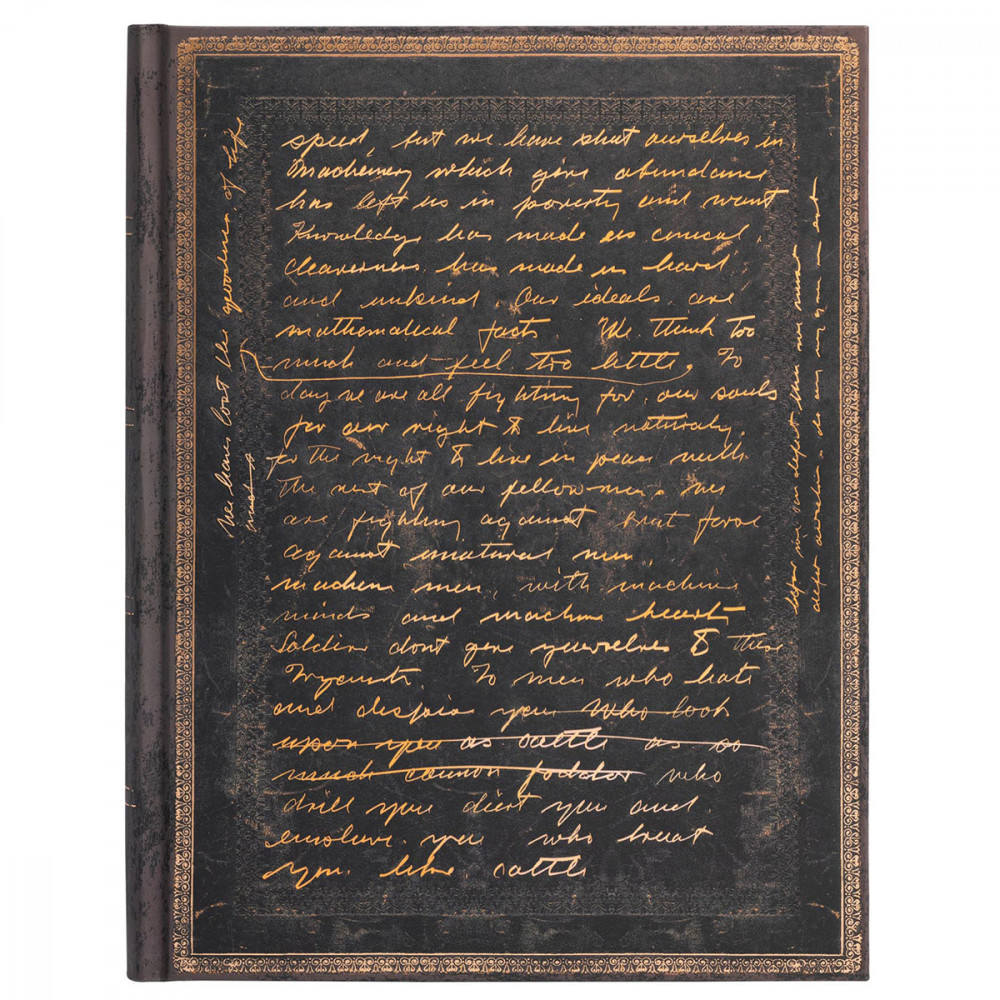 speed, but we have shut ourselves in
Machinery which give abundance
has left us in poverty and want
Knowledge has made us cinical,
cleaverness has made us hard
and unkind. Our ideals are
mathematical facts We think too
much and feel too little, To
day we are all fighting for our souls
for our right to live naturaly,
for the right to live in peace with
the rest of our fellow men. We
are fighting against brut force
against unatural men,
machen men, with machine
minds and machine hearts
Soldiers dont give yourselves to these
To men who hate
and despise you Who look
upon you as cattle as so
much cannon fodder who
drill you diert you and
enslave you who treat
you like cattle
We have lost the goodness of life